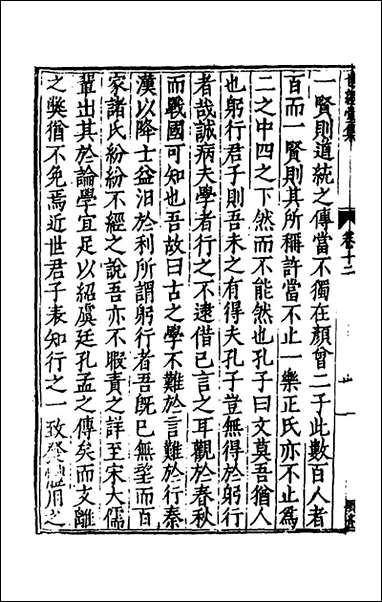 一賢則道統之傳當不獨在顏曾二子此數百人者
百而一賢則其所稱許當不止一樂正氏亦不止爲
二之中四之下然而不能然也孔子曰文莫吾猶人
也躬行君子則吾未之有得夫孔子豈無得於躬行
者哉誠病夫學者行之不逮借已言之耳觀於春秋
而戰國可知也吾故曰古之學不難於言難於行秦
漢以降士益汨於利所謂躬行者吾旣已無望而百
家諸氏紛紛不經之說吾亦不暇責之詳至宋大儒
輩出其於論學宜足以紹虞廷孔孟之傳矣而文離
之獘猶不免焉近世君子表知行之一致發體用之
卷十二